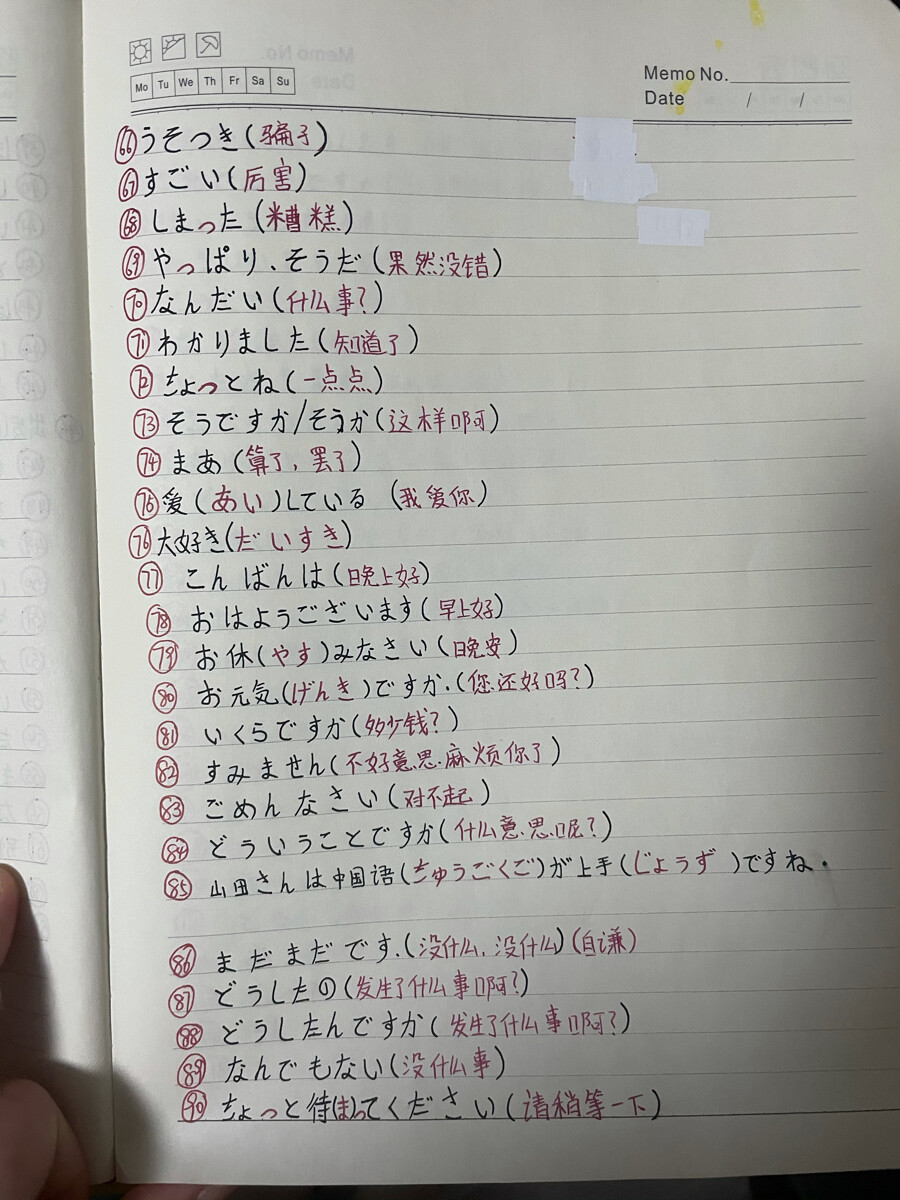 Mo Tu We Th Fr Sa Su
Memo No.
Date / /
66 うそつき(骗子)
67 すごい(厉害)
68 しまった(糟糕)
69 やっぱり、そうだ(果然没错)
70 なんだい(什么事?)
71 わかりました(知道了)
72 ちょっとね(一点点)
73 そうですか/そうか(这样啊)
74 まあ(算了,罢了)
75 愛(あい)している (我爱你)
76 大好き(だいすき)
77 こんばんは(晚上好)
78 おはようございます(早上好)
79 お休(やす)みなさい(晚安)
80 お元気(げんき)ですか.(您还好吗?)
81 いくらですか(多少钱?)
82 すみません(不好意思.麻烦你了)
83 ごめんなさい(对不起)
84 どういうことですか(什么意思呢?)
85 山田さんは中国语(ちゅうごくご)が上手(じょうず)ですね.
86 まだまだです.(没什么,没什么)(自谦)
87 どうしたの(发生了什么事啊?)
88 どうしたんですか(发生了什么事啊?)
89 なんでもない(没什么事)
90 ちょっと待(ま)ってください(请稍等一下)